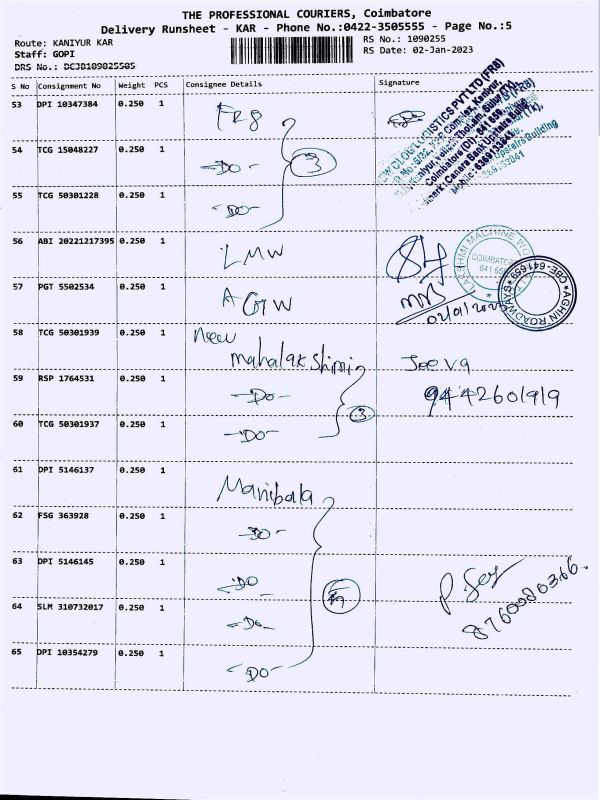 THE PROFESSIONAL COURIERS, Coimbatore
Delivery Runsheet - KAR - Phone No.:0422-3505555 - Page No.:5
Route: KANIYUR KAR RS No.: 1090255
Staff: GOPI RS Date: 02-Jan-2023
DRS No.: DCJB109025505
S No Consignment No Weight PCS Consignee Details Signature
53 DPI 10347384 0.250 1 FR8
54 TCG 15048227 0.250 1 -DO- 3
55 TCG 50301228 0.250 1 -DO-
56 ABI 20221217395 0.250 1 LMW
COIMBATORE
57 PGT 5502534 0.250 1 AGTW
02/01/2023
AGHIN ROADWAYS CBE-641659
58 TCG 50301939 0.250 1 New
mahalakshimi Jeeva
59 RSP 1764531 0.250 1 -DO- 9442601919
60 TCG 50301937 0.250 1 -DO- 3
61 DPI 5146137 0.250 1 Manibala
62 FSG 363928 0.250 1 -DO-
63 DPI 5146145 0.250 1 -DO
64 SLM 310732017 0.250 1 -Do-
65 DPI 10354279 0.250 1 -DO-